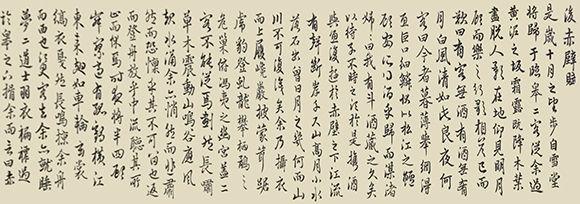 後赤壁賦
是歲十月之望步自雪堂
將歸于臨皋二客從余過
黃泥之坂霜露既降木葉
盡脫人影在地仰見明月
顧而樂之行歌相答已而
歎曰有客無酒有酒無肴
月白風清如此良夜何
客曰今者薄暮舉網得
魚巨口細鱗狀似松江之鱸
顧安所得酒乎歸而謀諸
婦婦曰我有斗酒藏之久矣
以待子不時之須於是攜酒
與魚復遊於赤壁之下江流
有聲斷岸千尺山高月小水
落石出曾日月之幾何而山
川不可復識矣余乃攝衣
而上履巉巖披蒙茸踞
虎豹登虬龍攀栖鶻之
危巢俯馮夷之幽宮蓋二
客不能從焉劃然長嘯
草木震動山鳴谷應風
起水涌余亦悄然而悲肅
然而恐凜乎其不可留也返
而登舟放乎中流聽其所
止而休焉時夜將半四顧
寂寥適有孤鶴橫江
東來翅如車輪玄裳
縞衣戛然長鳴掠余舟
而西也須臾客去余亦就睡
夢一道士羽衣翩僊過
臨皋之下揖余而言曰赤